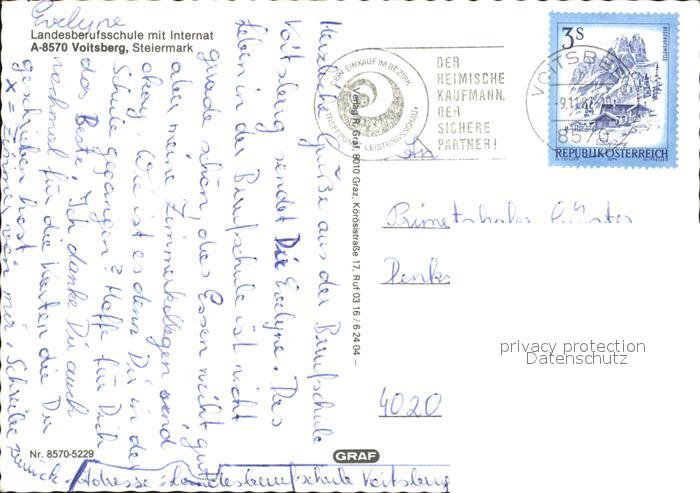 Evelyne
Landesberufsschule mit Internat
A-8570 Voitsberg, Steiermark
Herzliche Grüße aus der Berufschule
Voitsberg sendet Dir Evelyne. Das
Leben in der Berufschule ist nicht
grade schön, das Essen nicht gut
aber meine Zimmerkollegen send
okay. Wie ist es denn Dir in der
Schule gegangen? Hoffe für Dich
das Beste! Ich danke Dir auch
nochmal für die Karten die Du
geschrieben hast
x = Zimmer von mir Schreibe zurück.
Adresse: Landesberufschule Voitsberg
Nr. 8570-5229
Verlag R. Graf, 8010 Graz, Körösistraße 17, Ruf 03 16 / 6 24 04 –
GRAF
EIN EINKAUF IM BEZIRK
TREFFPUNKT LEISTUNGSSCHAU
DER
HEIMISCHE
KAUFMANN,
DER
SICHERE
PARTNER!
VOITSBERG
-9.11.87
8570
3S
REPUBLIK ÖSTERREICH
An
Penk
4020
privacy protection
Datenschutz